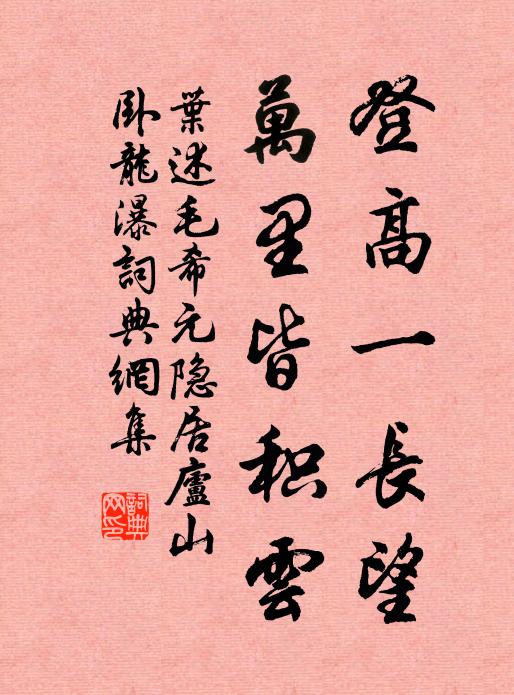 登高一長望
萬里皆积雲
葉述毛希元隐居廬山
卧龍瀑詞典網集
詞典
网印